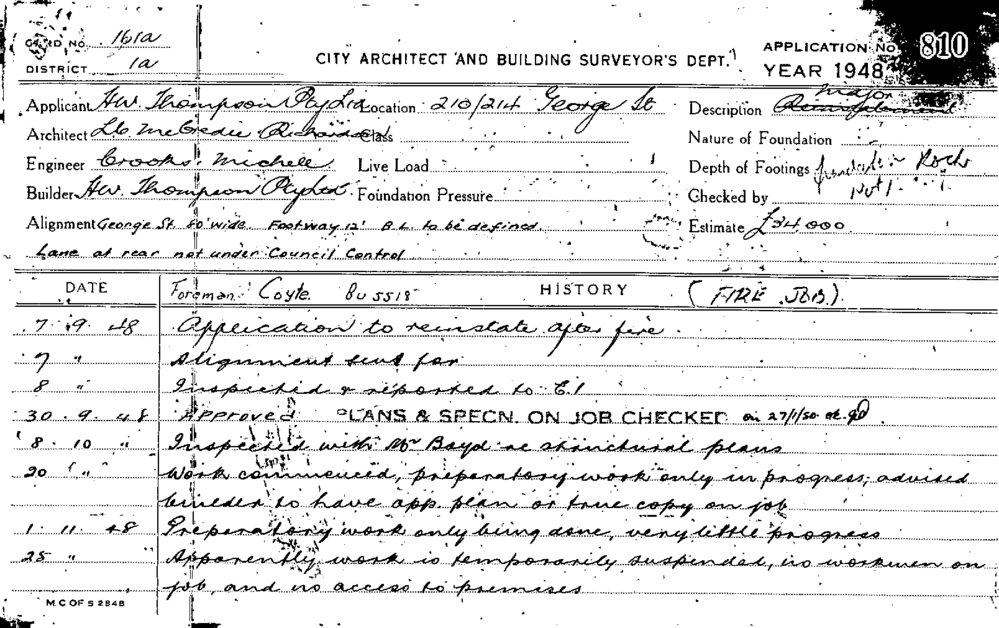 CARD No. 161a
DISTRICT 1a
CITY ARCHITECT AND BUILDING SURVEYOR'S DEPT.
APPLICATION No. 810
YEAR 1948
Applicant H.W. Thompson Pty Ltd Location 210/214 George St Description Major
Architect Lt. McCredie Richardson Class Nature of Foundation
Engineer Crooks, Michell Live Load Depth of Footings Rock
Builder H.W. Thompson Pty Ltd. Foundation Pressure Checked by
Alignment George St 80' wide Footway 12' B.L. to be defined. Estimate £34000
Lane at rear not under Council Control
DATE Foreman. Coyte. BU 5518 HISTORY (FIRE JOB.)
7 . 9 . 48 Application to reinstate after fire.
7 " Alignment sent for
8 " Inspected & reported to C.I
30 . 9 . 48 Approved PLANS & SPECN. ON JOB CHECKED on 27/1/50 ok.
8 . 10 " Inspected with Mr Boyd re structural plans
20 " " Work commenced, preparatory work only in progress; advised
builder to have app. plan or true copy on job
1 . 11 . 48 Preparatory work only being done, very little progress
25 " Apparently work is temporarily suspended, no workmen on
job, and no access to premises
M.C OF S 2848